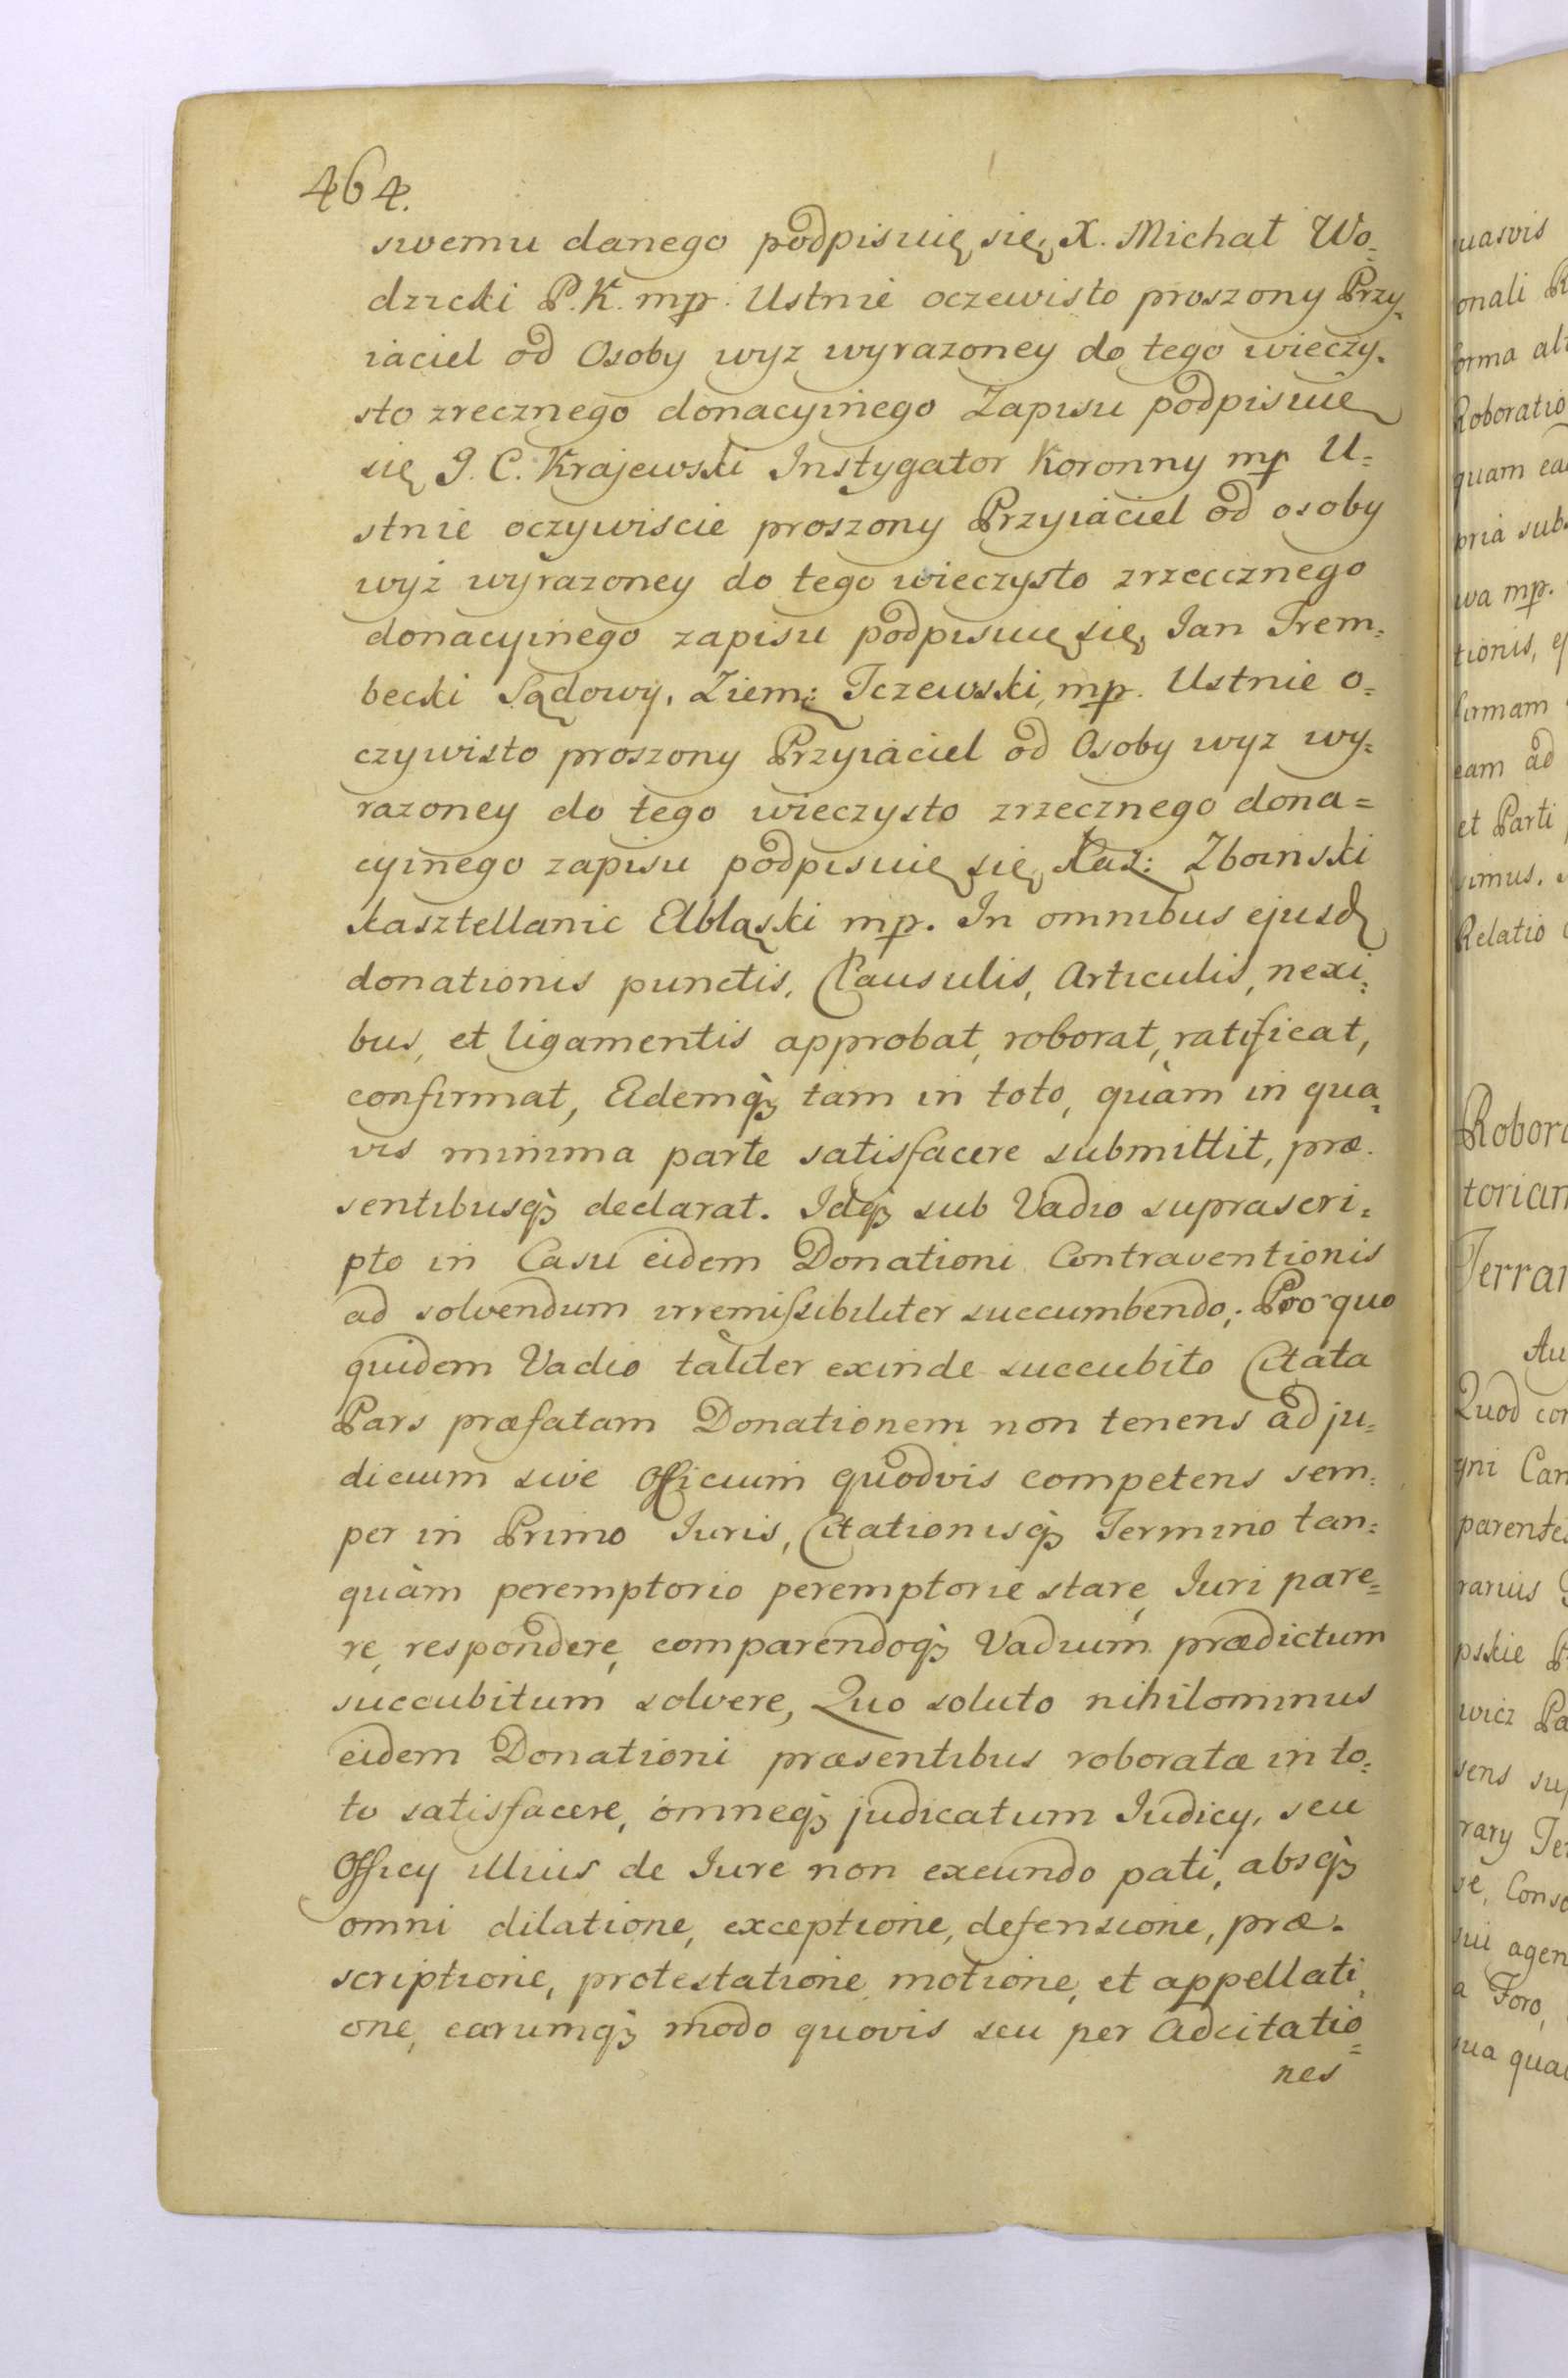 464.
swemu danego podpisuię się, X. Michał Wo=
dzicki P. K. mp. Ustnie oczewisto proszony Przy=
iaciel od Osoby wyz wyrazoney do tego wieczy=
sto zrecznego donacyinego Zapisu podpisuię
się J. C. Krajewski Instygator Koronny mp U=
stnie oczywiscie proszony Przyiaciel od osoby
wyż wyrazoney do tego wieczysto zrzecznego
donacyinego zapisu podpisuię się, Ian Trem=
becki Sądowy, Ziem: Tczewski, mp. Ustnie o=
czywisto proszony Przyiaciel od Osoby wyz wy=
razoney do tego wieczysto zrzecznego dona=
cyinego zapisu podpisuię się, Kaz: Zboinski
Kasztellanic Elbląski mp. In omnibus ejusd
donationis punctis, Clausulis, Articulis, nexi=
bus, et ligamentis approbat, roborat, ratificat,
confirmat, Eidemq tam in toto, quàm in qua=
vis minima parte satisfacere submittit, præ=
sentibusq declarat. Idq sub Vadio suprascri=
pto in Casu eidem Donationi Contraventionis
ad solvendum irremissibiliter succumbendo; Pro quo
quidem Vadio taliter exinde succubito Citata
Pars præfatam Donationem non tenens ad ju=
dicium sive Officium quodvis competens sem=
per in Primo Iuris, Citationisq Termino tan=
quàm peremptorio peremptorie stare, Iuri pare=
re, respondere, comparendoq Vadium prædictum
succubitum solvere, Quo soluto nihilominus
eidem Donationi præsentibus roboratæ in to=
to satisfacere, omneq judicatum Iudicy, seu
Officy illius de Iure non exeundo pati, absq
omni dilatione, exceptione, defensione, præ=
scriptione, protestatione motione, et appellati=
one, earumq modo quovis seu per Adcitatio=
nes
uasvis
onali
forma
Roboratio
quam
pria
wa mp.
tionis,
firmam
eam ad
et Parti
Relatio
Robor
torian
Terrar
Quod
gni
parentes
psxie
wicz
sens
rary
Conse
sui agen
a Foro,
sua